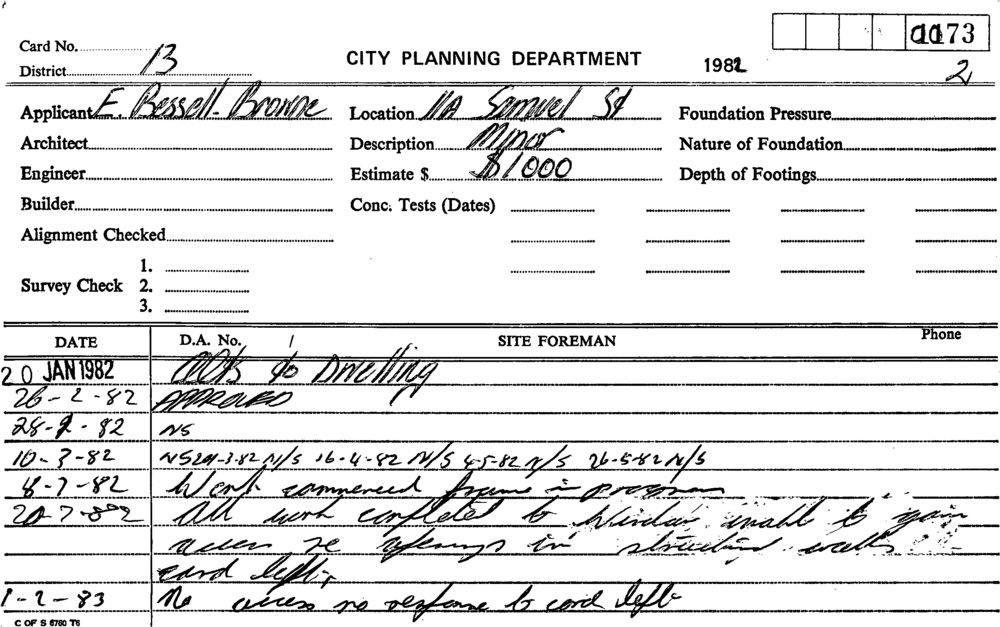 Card No. 0073
District 13 CITY PLANNING DEPARTMENT 1982 2
Applicant E. Bessell-Browne Location 11A Samuel St Foundation Pressure
Architect Description Minor Nature of Foundation
Engineer Estimate $ $1000 Depth of Footings
Builder Conc. Tests (Dates)
Alignment Checked
1.
Survey Check 2.
3.
DATE D.A. No. SITE FOREMAN Phone
20 JAN 1982 to Dwelling
26-2-82 APPROVED
28-2-82 NS
10-3-82 NS 3-82 N/S 16-4-82 N/S 4-5-82 N/S 26-5-82 N/S
8-7-82 Work commenced frame in progress
20-7-82 All work completed to Window unable to gain
access re openings in structural walls
card left.
1-2-83 No access no response to card left
C OF S 6760 T6